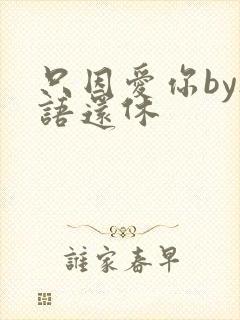 只因愛你by
語還休
誰家春早